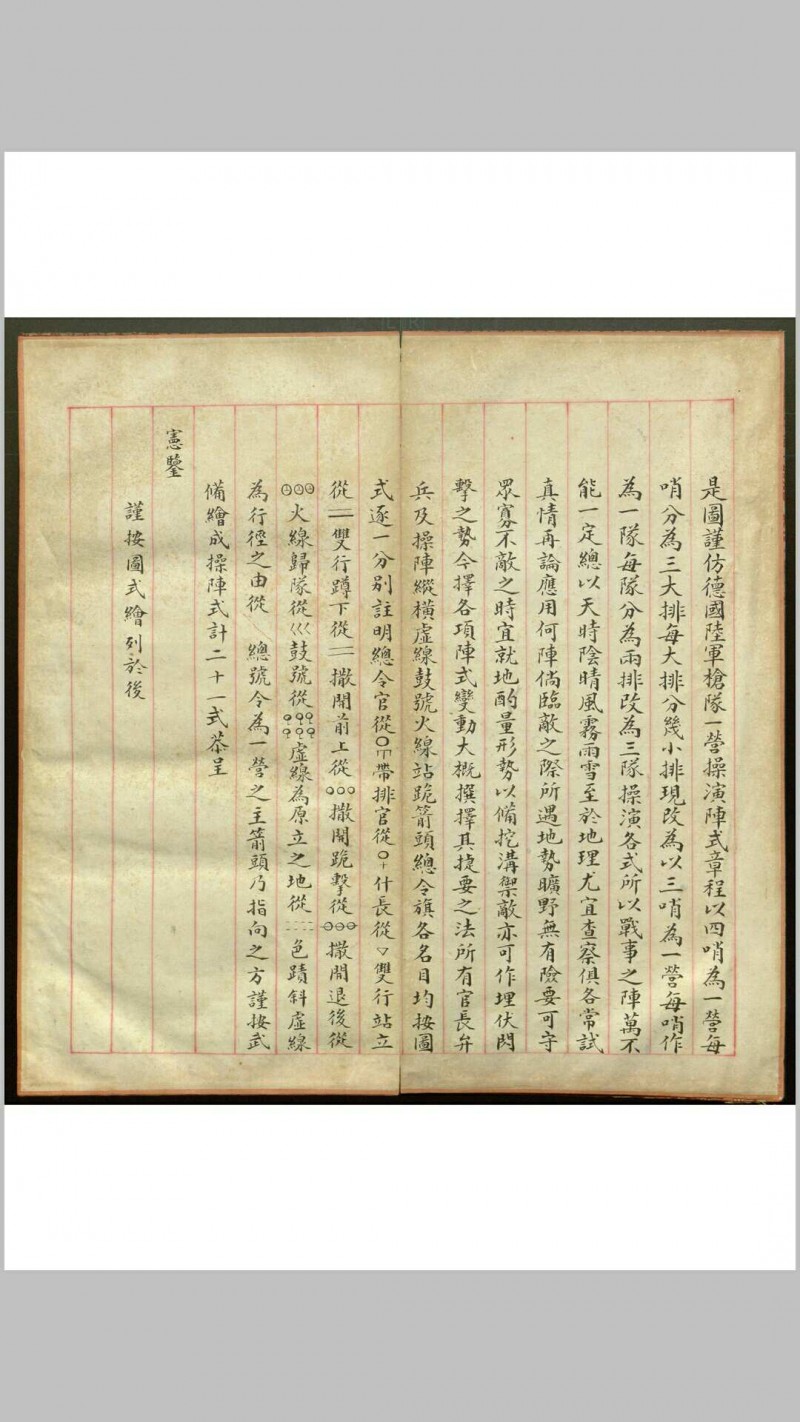 是圖謹仿德國陸軍槍隊一營操演陣式章程以四哨為一營每
哨分為三大排每大排分幾小排現改為以三哨為一營每哨作
為一隊每隊分為兩排改為三隊操演各式所以戰事之陣萬不
能一定總以天時陰晴風霧雨雪至於地理尤宜查察俱各常試
真情再論應用何陣倘臨敵之際所遇地勢曠野無有險要可守
眾寡不敵之時宜就地酌量形勢以備挖溝禦敵亦可作埋伏閃
擊之勢今擇各項陣式變動大概撰擇其捷要之法所有官長弁
兵及操陣縱橫虛線鼓號火線站跪箭頭總令旗各名目均按圖
式逐一分別註明總令官從帶排官從什長從▽雙行站立
從雙行蹲下從撒開前上從○○○撒開跪擊從撒開退後從
火線歸隊從〈〈〈鼓號從虛線為原立之地從色蹟斜虛線
為行徑之由從總號令為一營之主箭頭乃指向之方謹按武
備繪成操陣式計二十一式恭呈
憲鑒
謹按圖式繪列於後